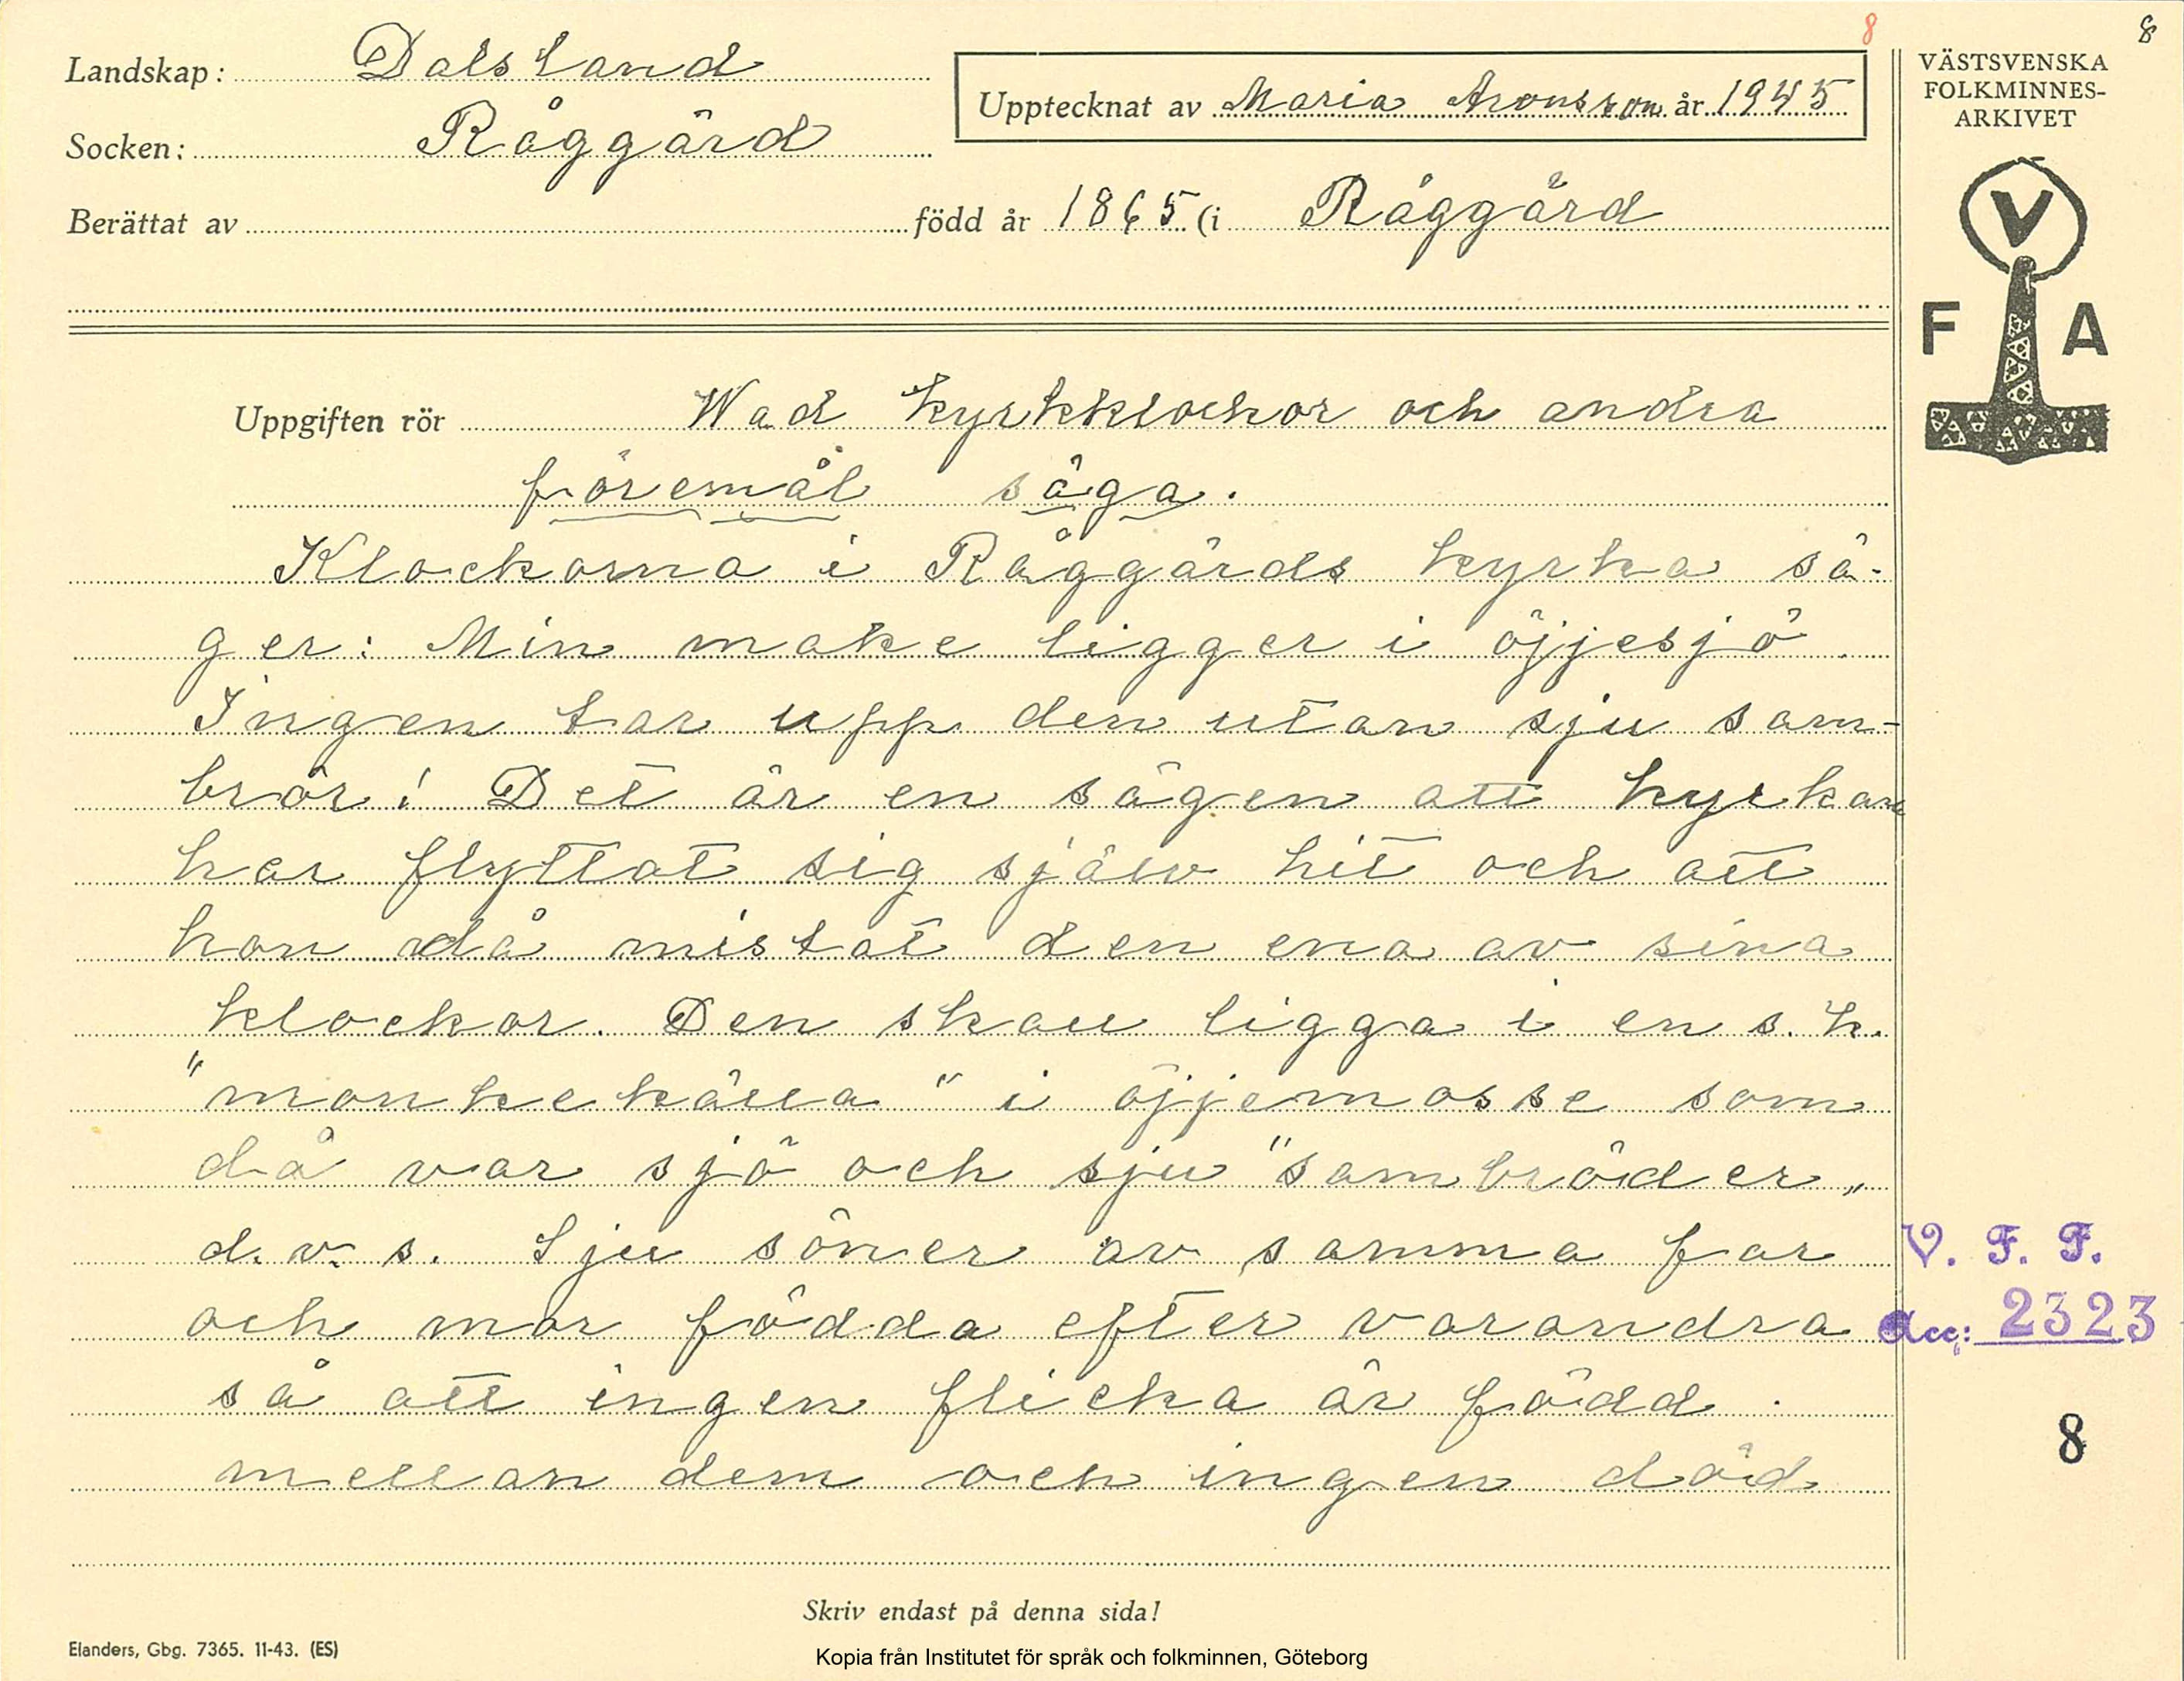 8
8
Landskap: Dalsland
Socken: Råggärd
Upptecknat av Maria Aronsson år 1945
Berättat av född år 1865 (i Råggärd
VÄSTSVENSKA
FOLKMINNES-
ARKIVET
V
F A
Uppgiften rör Wad kyrkklockor och andra
föremål säga.
Klockorna i Råggärds kyrka sä-
ger: Min make ligger i öjjesjö.
Ingen tar upp den utan sju sam-
brör! Det är en sägen att kyrkan
har flyttat sig själv hit och att
hon då mistat den ena av sina
klockor. Den skall ligga i en s. k.
"monkekälla" i öjjemosse som
då var sjö och sju "sambröder"
d. v. s. sju söner av samma far
och mor födda efter varandra
så att ingen flicka är född
mellan dem och ingen död
V. F. F.
Acc: 2323
8
Skriv endast på denna sida!
Elanders, Gbg. 7365. 11-43. (ES)
Kopia från Institutet för språk och folkminnen, Göteborg